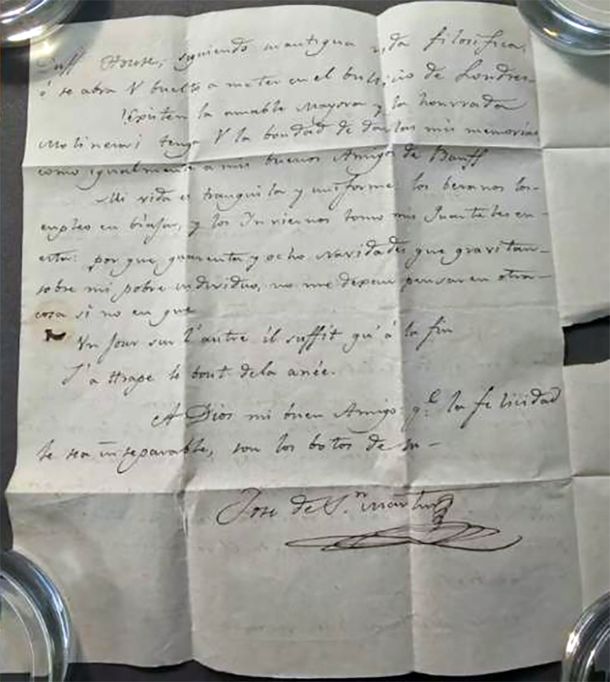 Duff House, siguiendo su antigua vida filosofica,
ó se abra V buelto a meter en el bullicio de Londres–
Existen la amable Mayora y la honrrada
Molinera; tenga V la bondad de darlas mis memorias
como igualmente a mis buenos Amigos de Banff
Mi vida es tranquila y uniforme: los beranos los–
empleo en biajar, y los Inviernos tomo mis Quarteles en–
esta: por que quarenta y ocho navidades que gravitan–
sobre mi pobre individuo, no me dexan pensar en otra–
cosa si no en que
Un Jour sur l'autre il suffit qu'á la fin
J'attrape le bout de la anée.
A Dios mi buen Amigo q.e la felicidad
le sea inseparable, son los botos de su–
Jose de S.n Martin